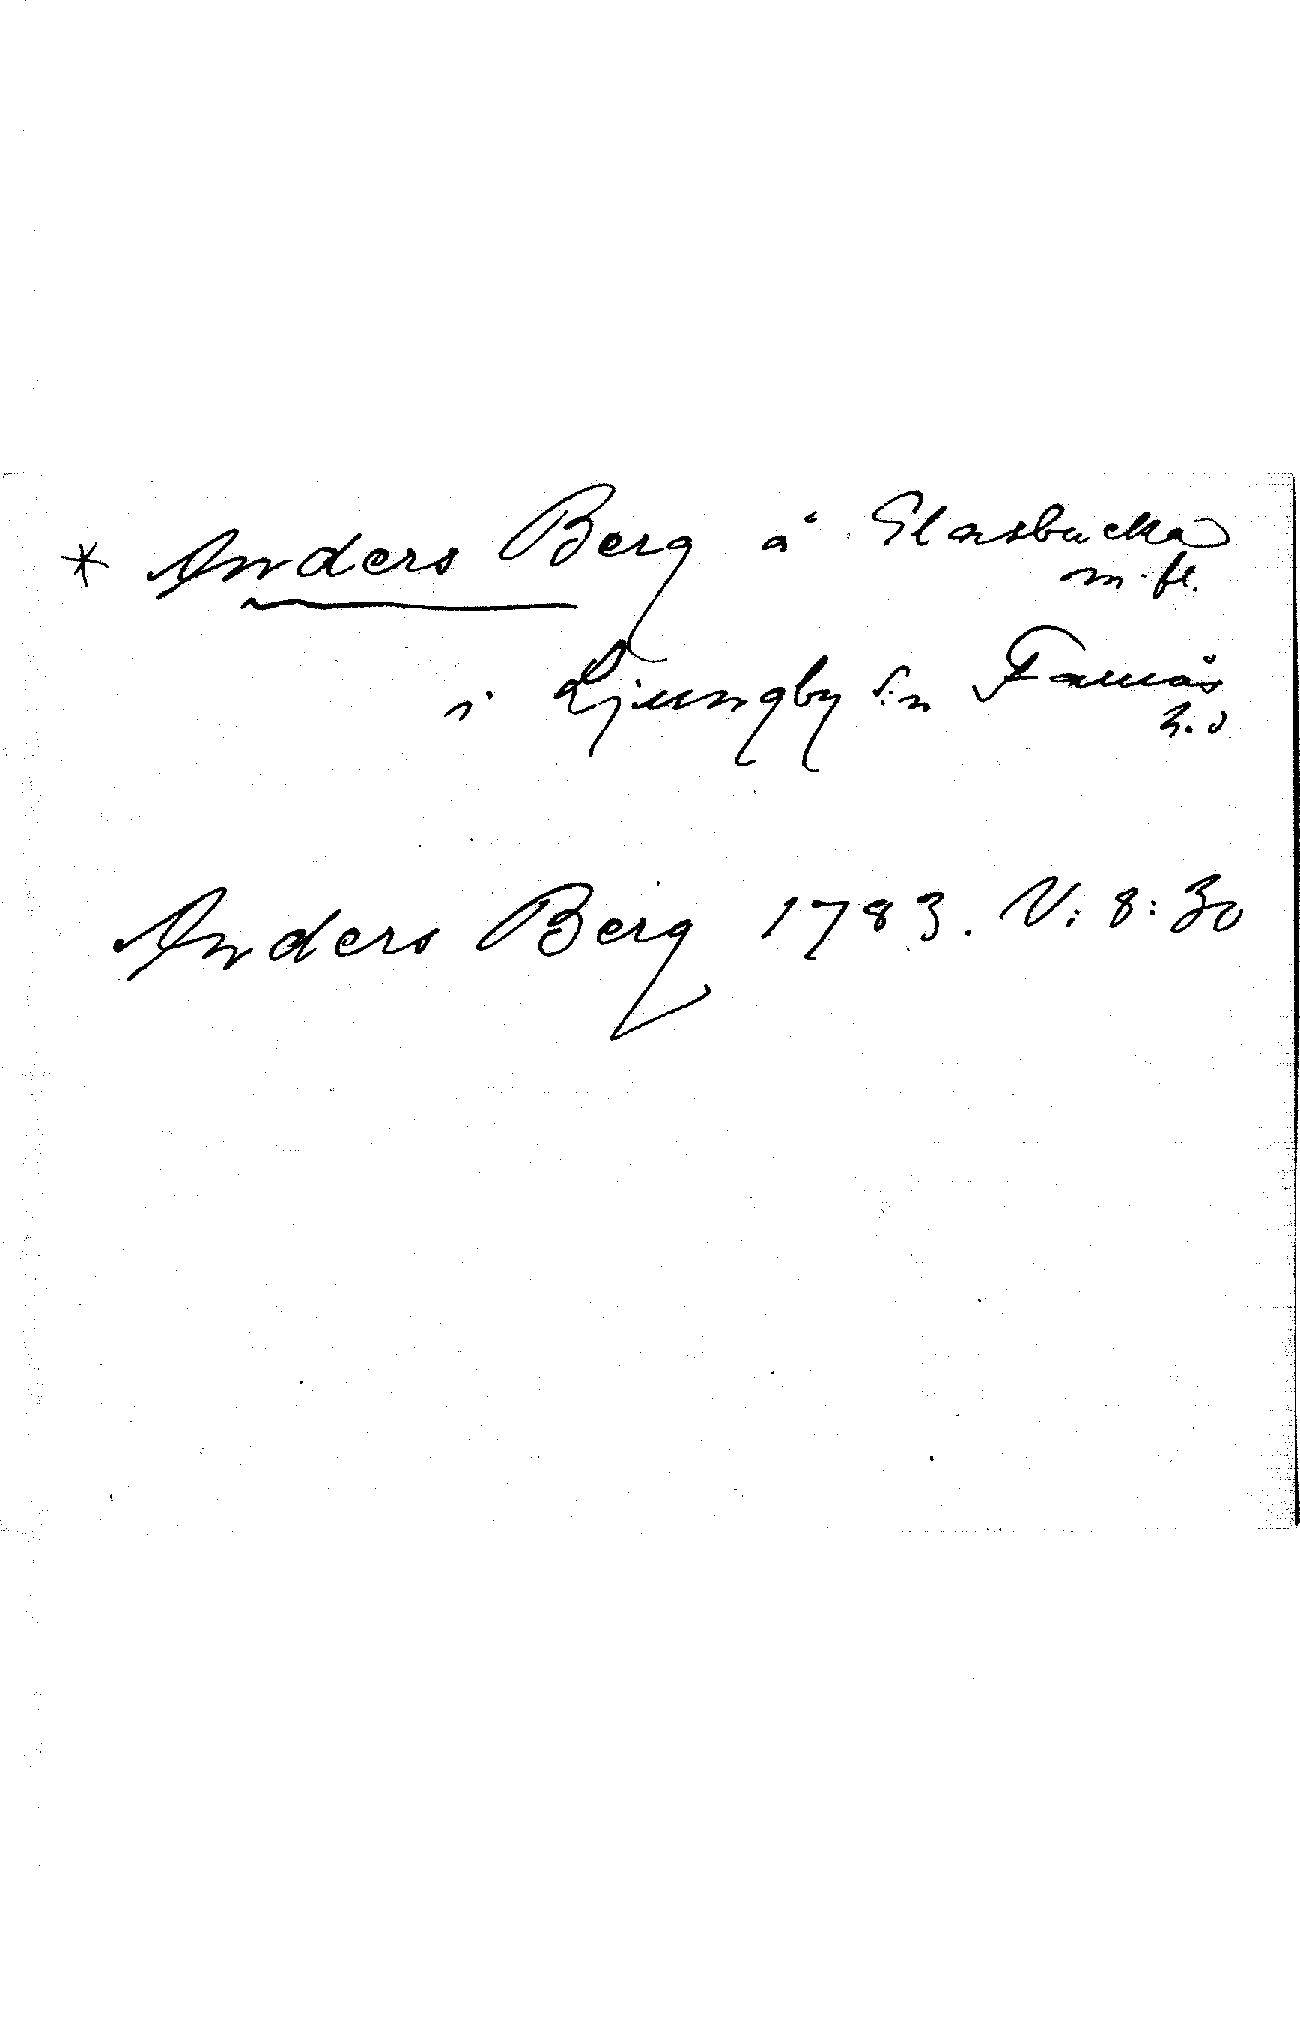 * Anders Berg å Elasbacka
m. fl.
i Ljungby s:n Faurås
h. d
Anders Berg 1783. V: 8: 30